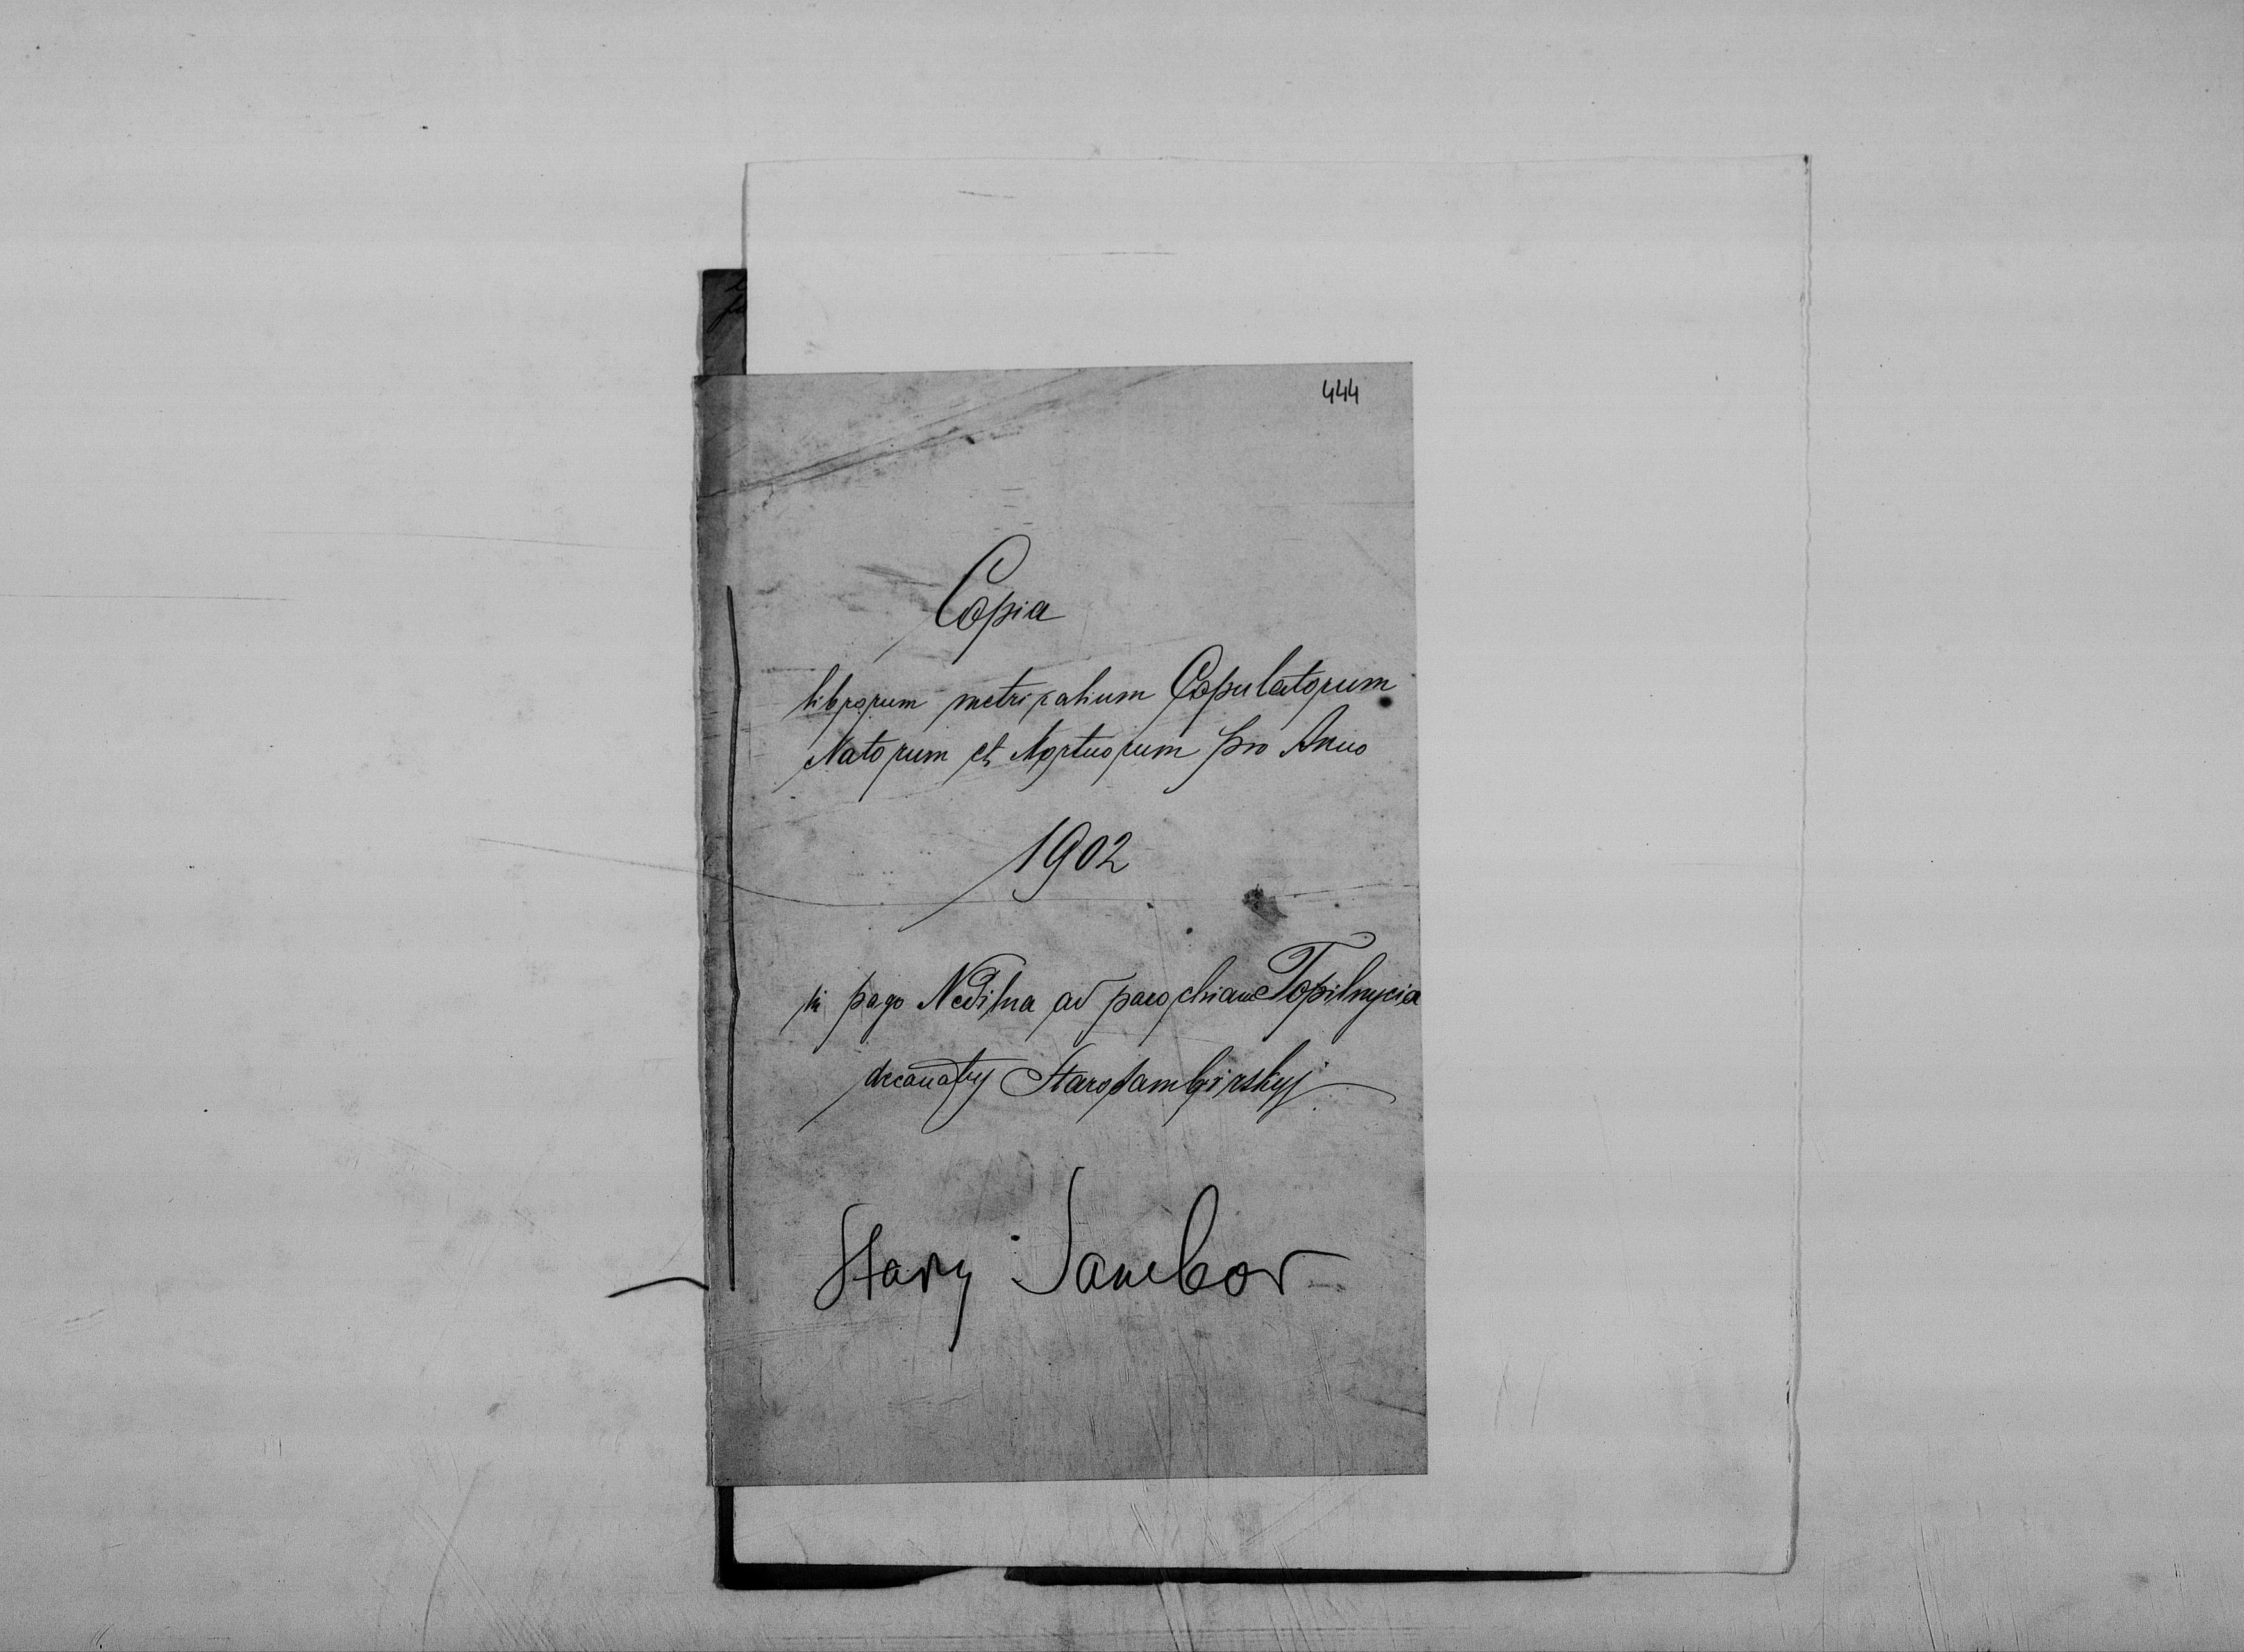 444
Copia
librorum metricalium Copulatorum
Natorum et Mortuorum pro Anno
1902
in pago Nedilna ad parochiam Topilnycia
decanatus Starosambirskyj
Stary Sambor